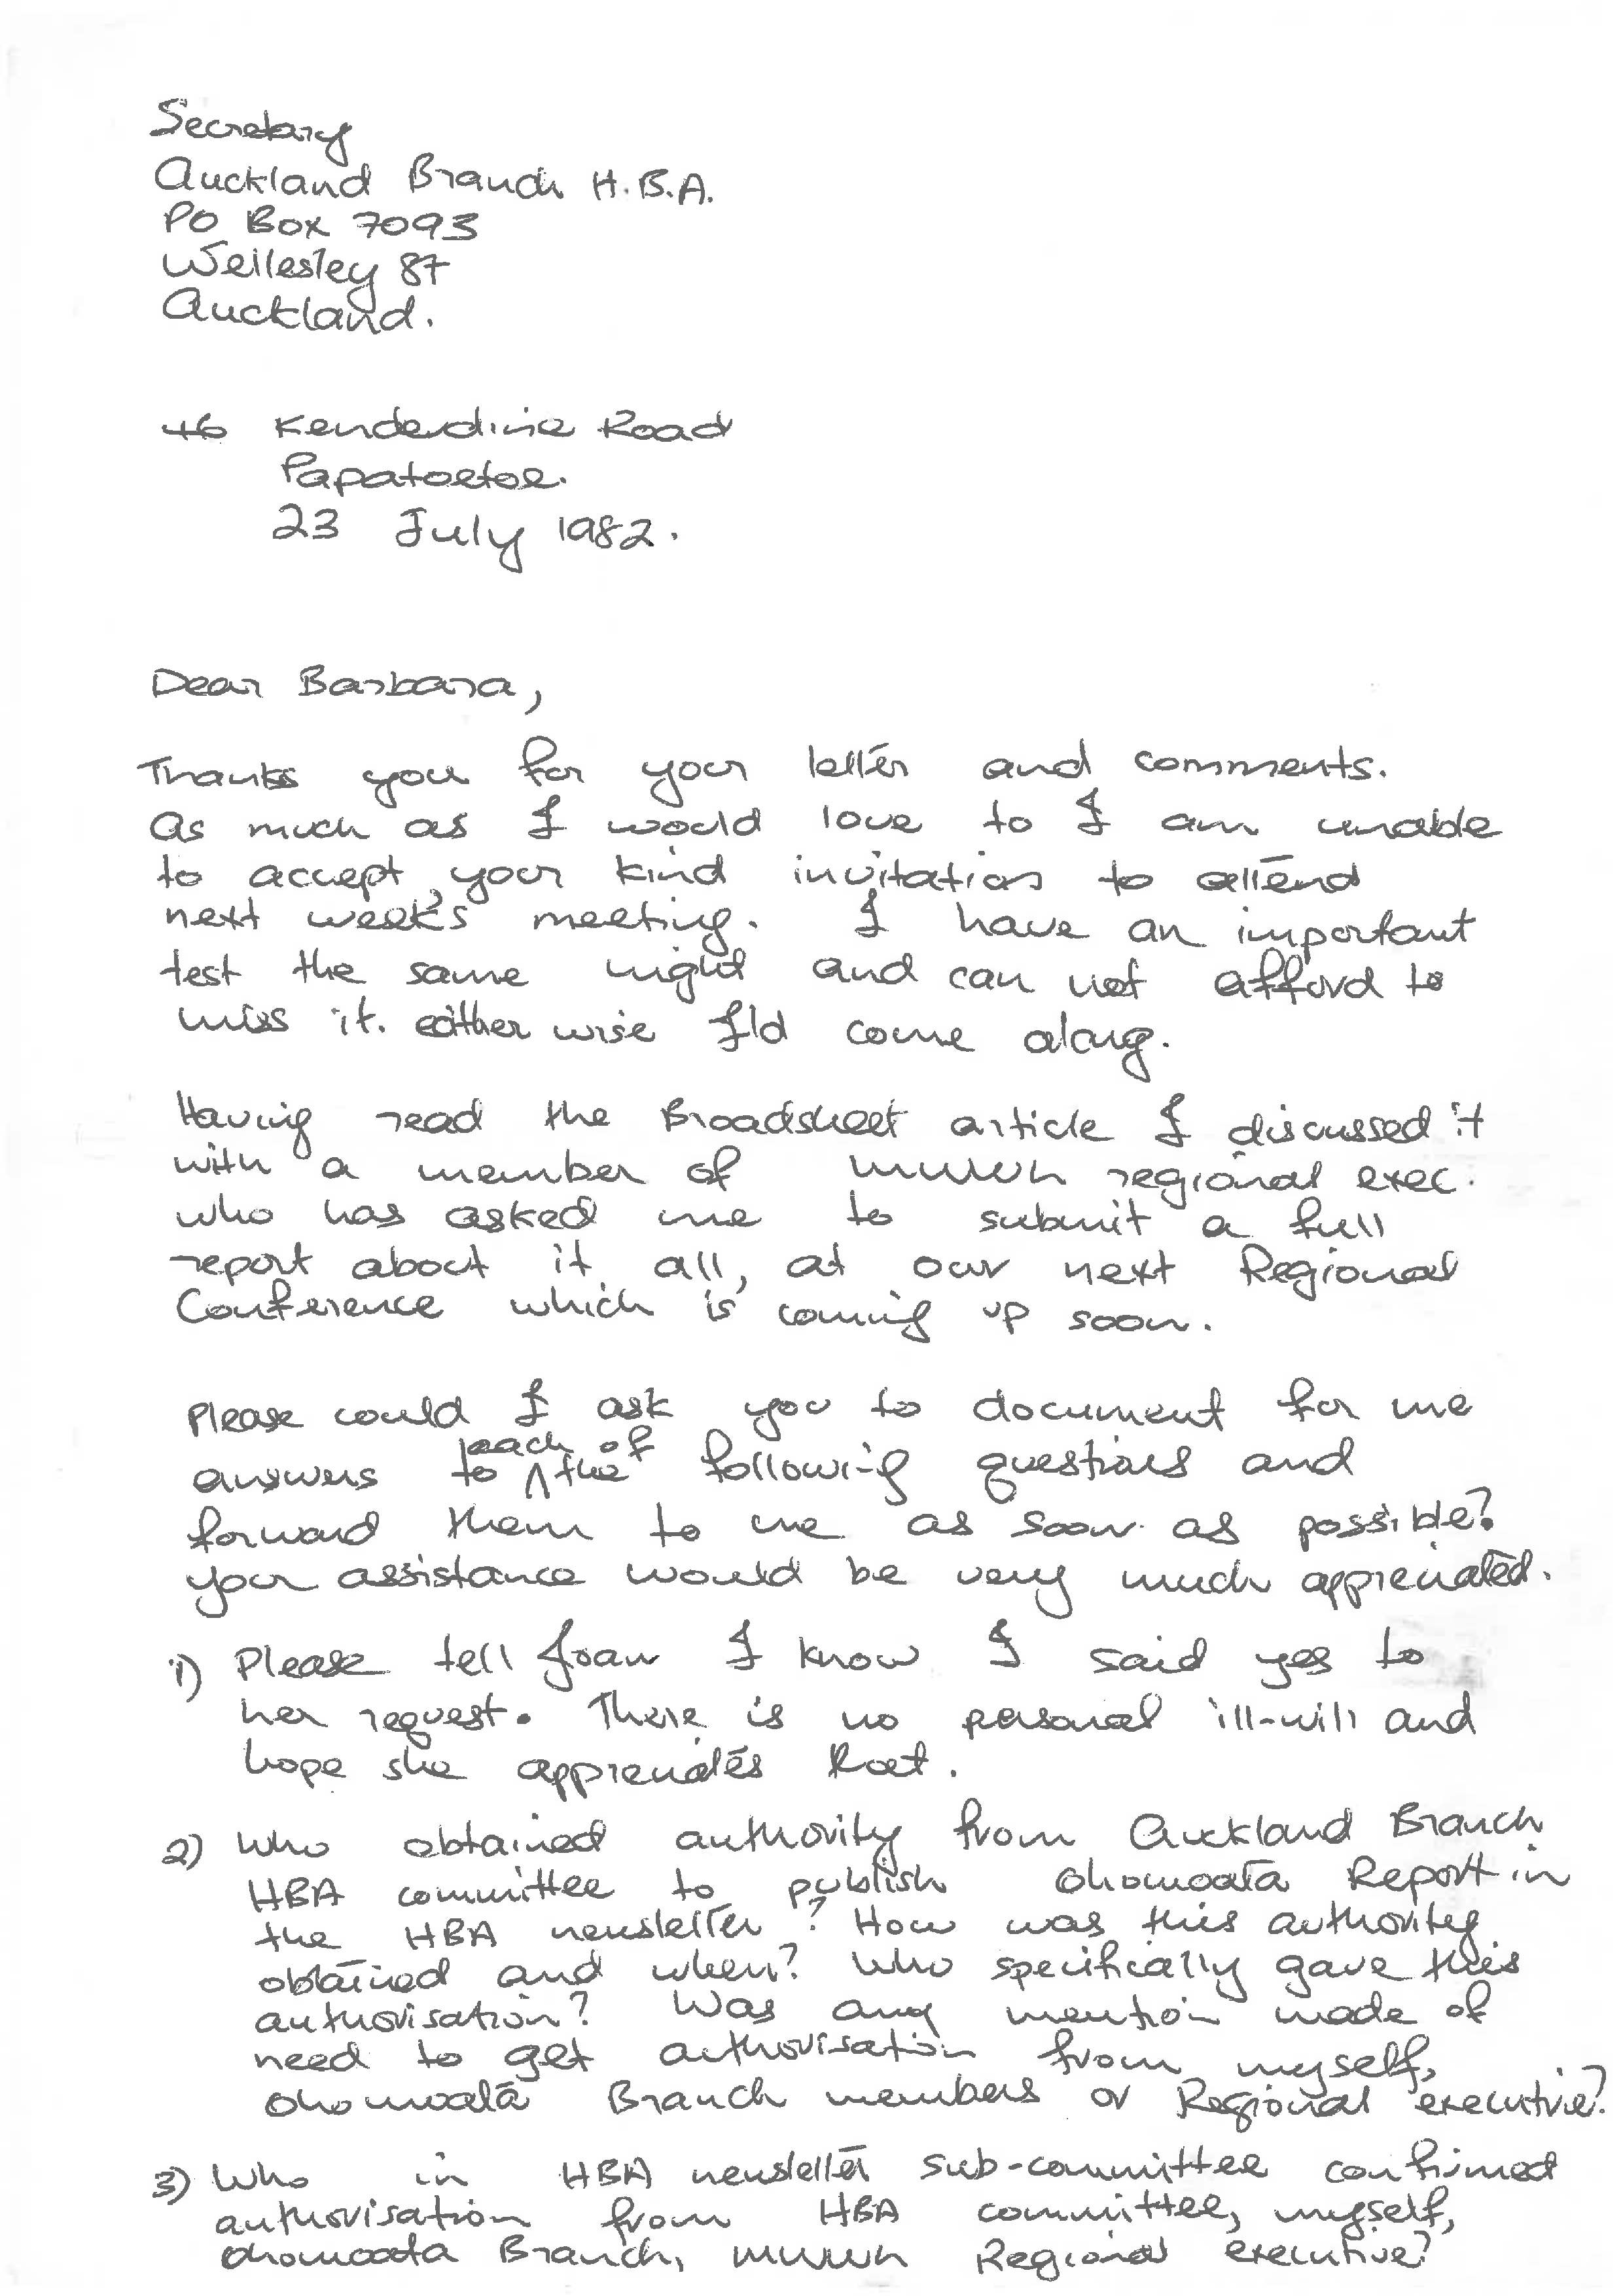 Secretary
Auckland Branch H.B.A.
PO Box 7093
Wellesley St
Auckland.
46 Kenderdine Road
Papatoetoe.
23 July 1982.
Dear Barbara,
Thanks you for your letter and comments.
As much as I would love to I am unable
to accept your kind invitation to attend
next week's meeting. I have an important
test the same night and can not afford to
miss it. eitherwise I'ld come along.
Having read the Broadsheet article I discussed it
with a member of MWWH regional exec.
who has asked me to submit a full
report about it all, at our next Regional
Conference which is coming up soon.
Please could I ask you to document for me
answers to each of the following questions and
forward them to me as soon as possible?
Your assistance would be very much appreciated.
1) Please tell Joan I know I said yes to
her request. There is no personal ill-will and
hope she appreciates that.
2) Who obtained authority from Auckland Branch
HBA committee to publish Ohomoata Report in
the HBA newsletter? How was this authority
obtained and when? Who specifically gave this
authorisation? Was any mention made of
need to get authorisation from myself,
Ohomoata Branch members or Regional executive?
3) Who in HBA newsletter sub-committee confirmed
authorisation from HBA committee, myself,
Ohomoata Branch, MWWH Regional executive?